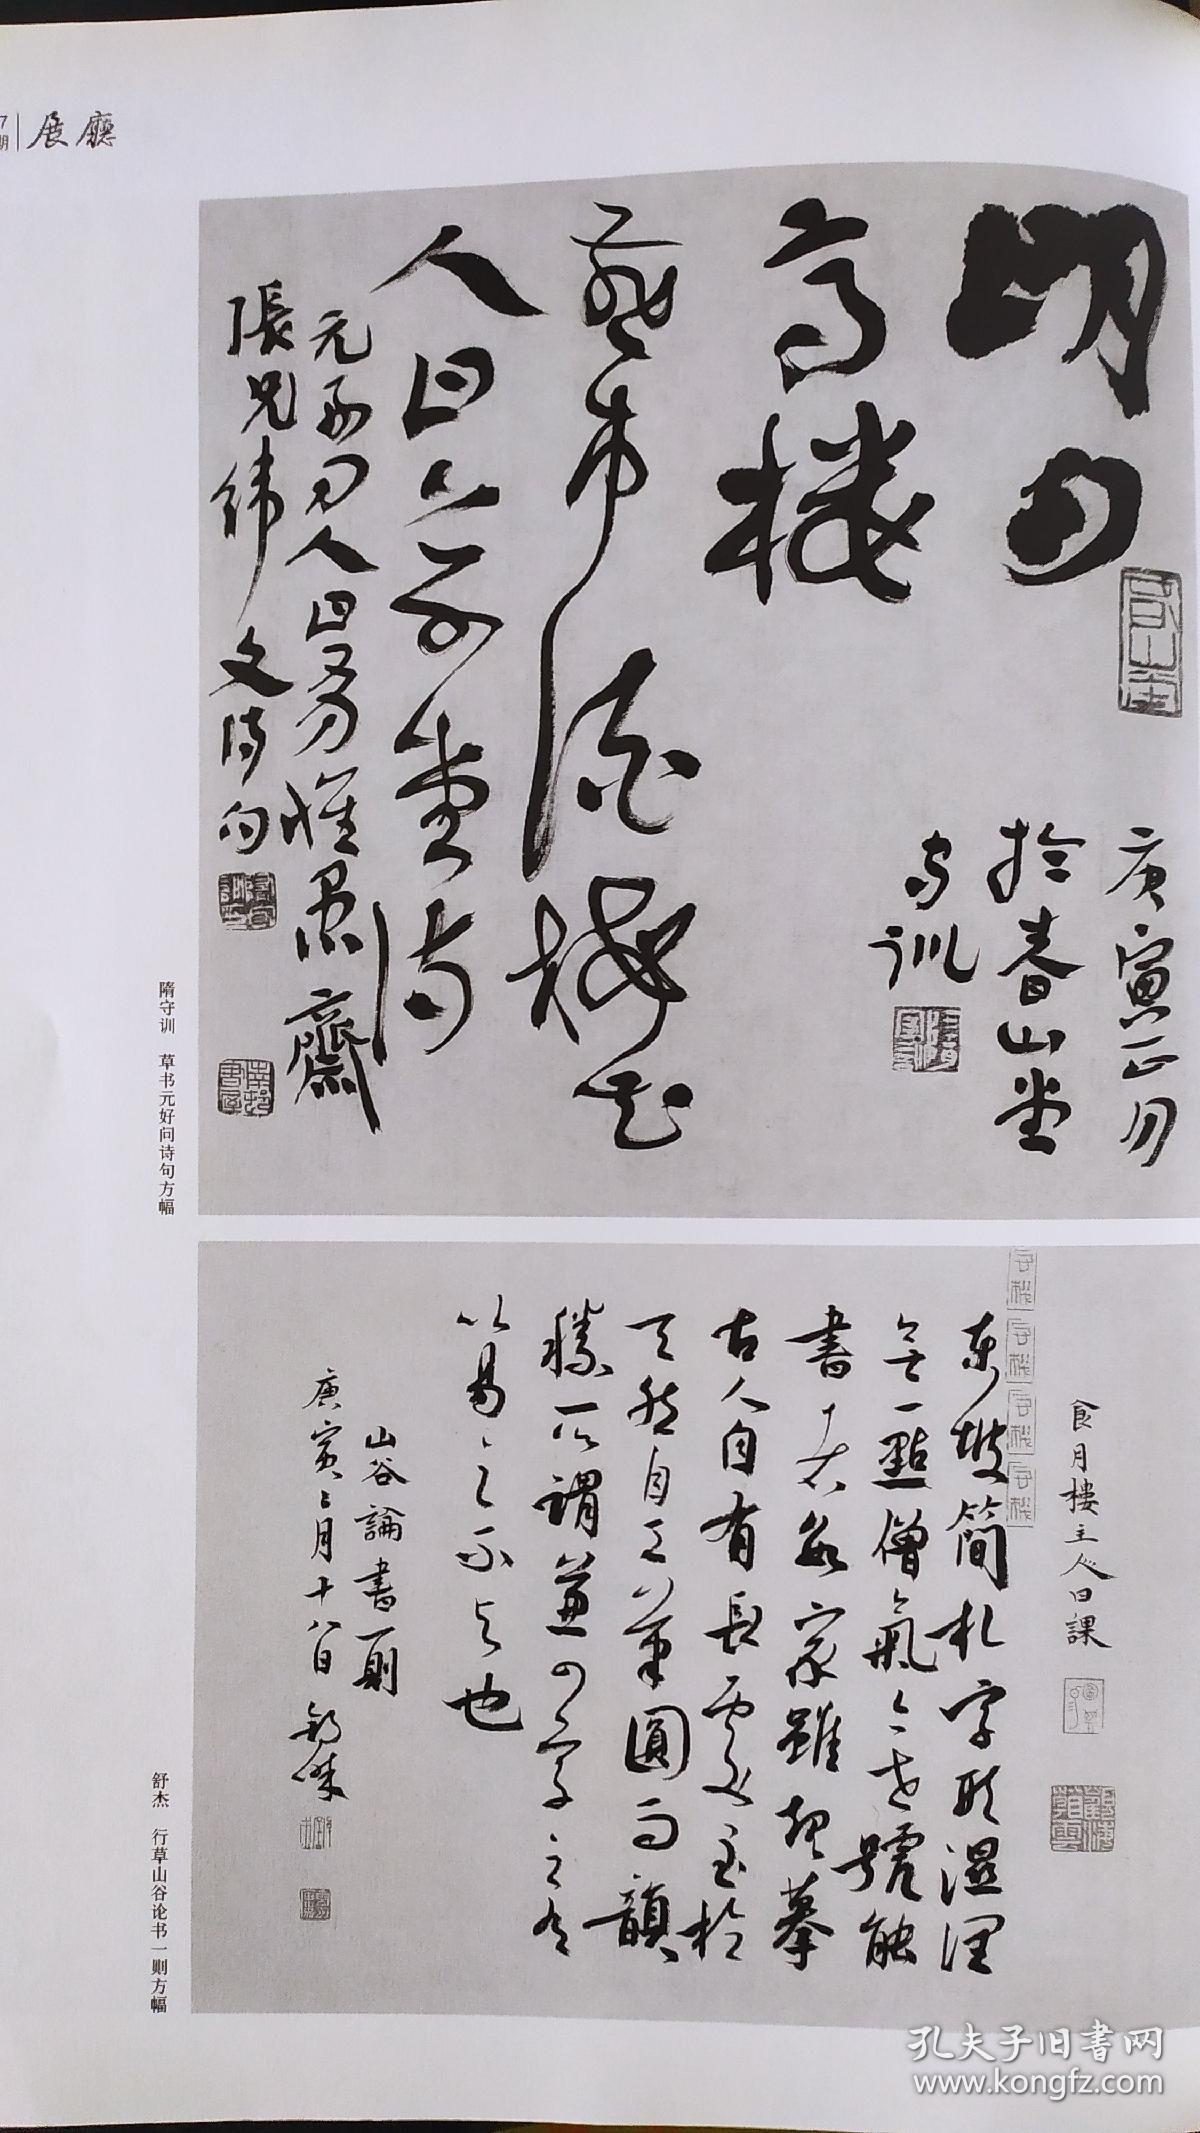 7期 展廳
明月
高樓
燕市酒梅花
人日草堂詩
元好問人日有懷愚齋
張兄緯文詩句
庚寅正月
於春山堂
守訓
隋守训 草书元好问诗句方幅
食月樓主人日課
東坡簡札字形溫潤
無一點俗氣今世號能
書者數家雖規摹
古人自有長處至於
天然自工筆圓而韻
勝所謂兼四子之有
以易之不與也
山谷論書一則
庚寅二月十八日舒傑
舒杰 行草山谷论书一则方幅
孔夫子旧书网
www.kongfz.com